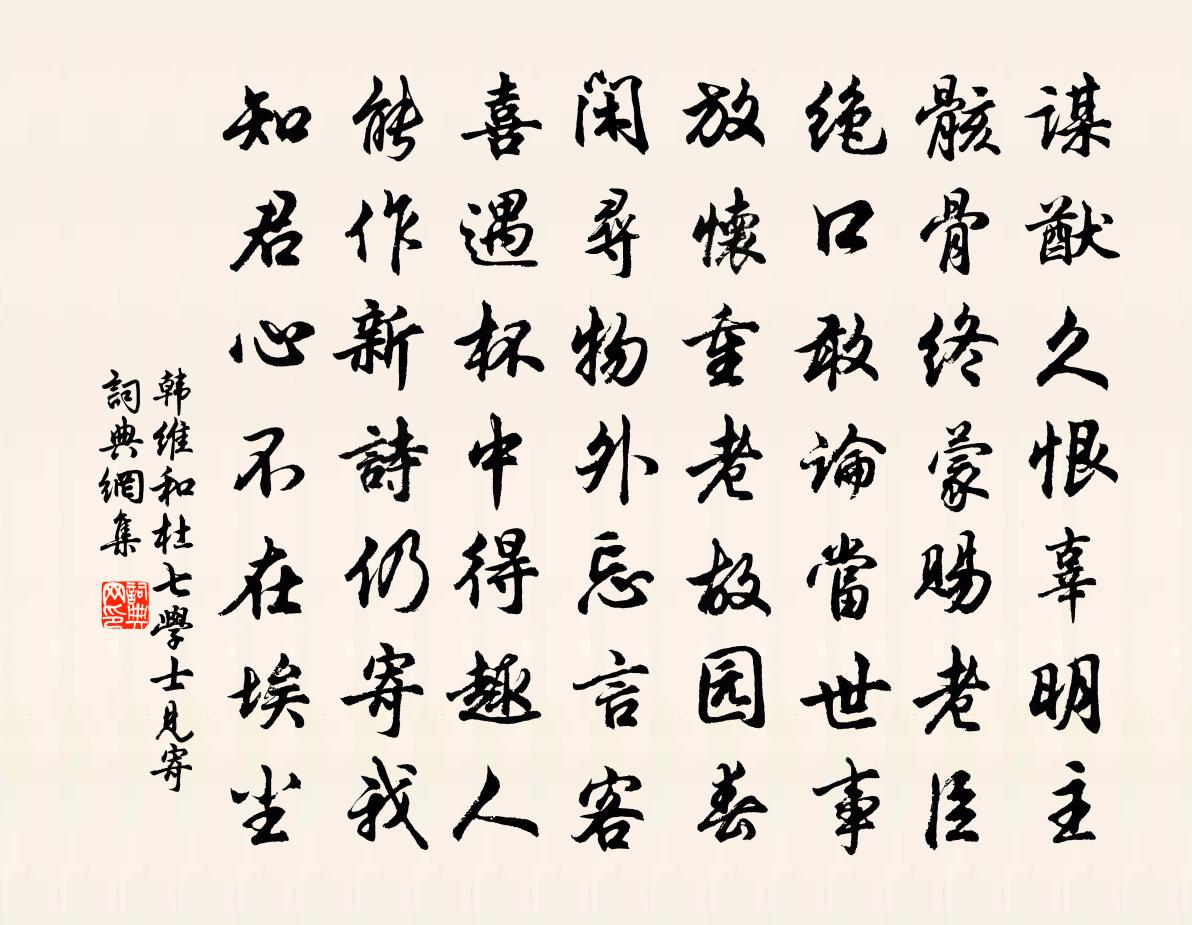 謀猷久恨辜明主
骸骨終蒙賜老臣
绝口敢論當世事
放懷重老故园春
闲尋物外忘言客
喜遇杯中得趣人
能作新詩仍寄我
知君心不在埃尘
韩维和杜七學士見寄
詞典網集
詞典
网印